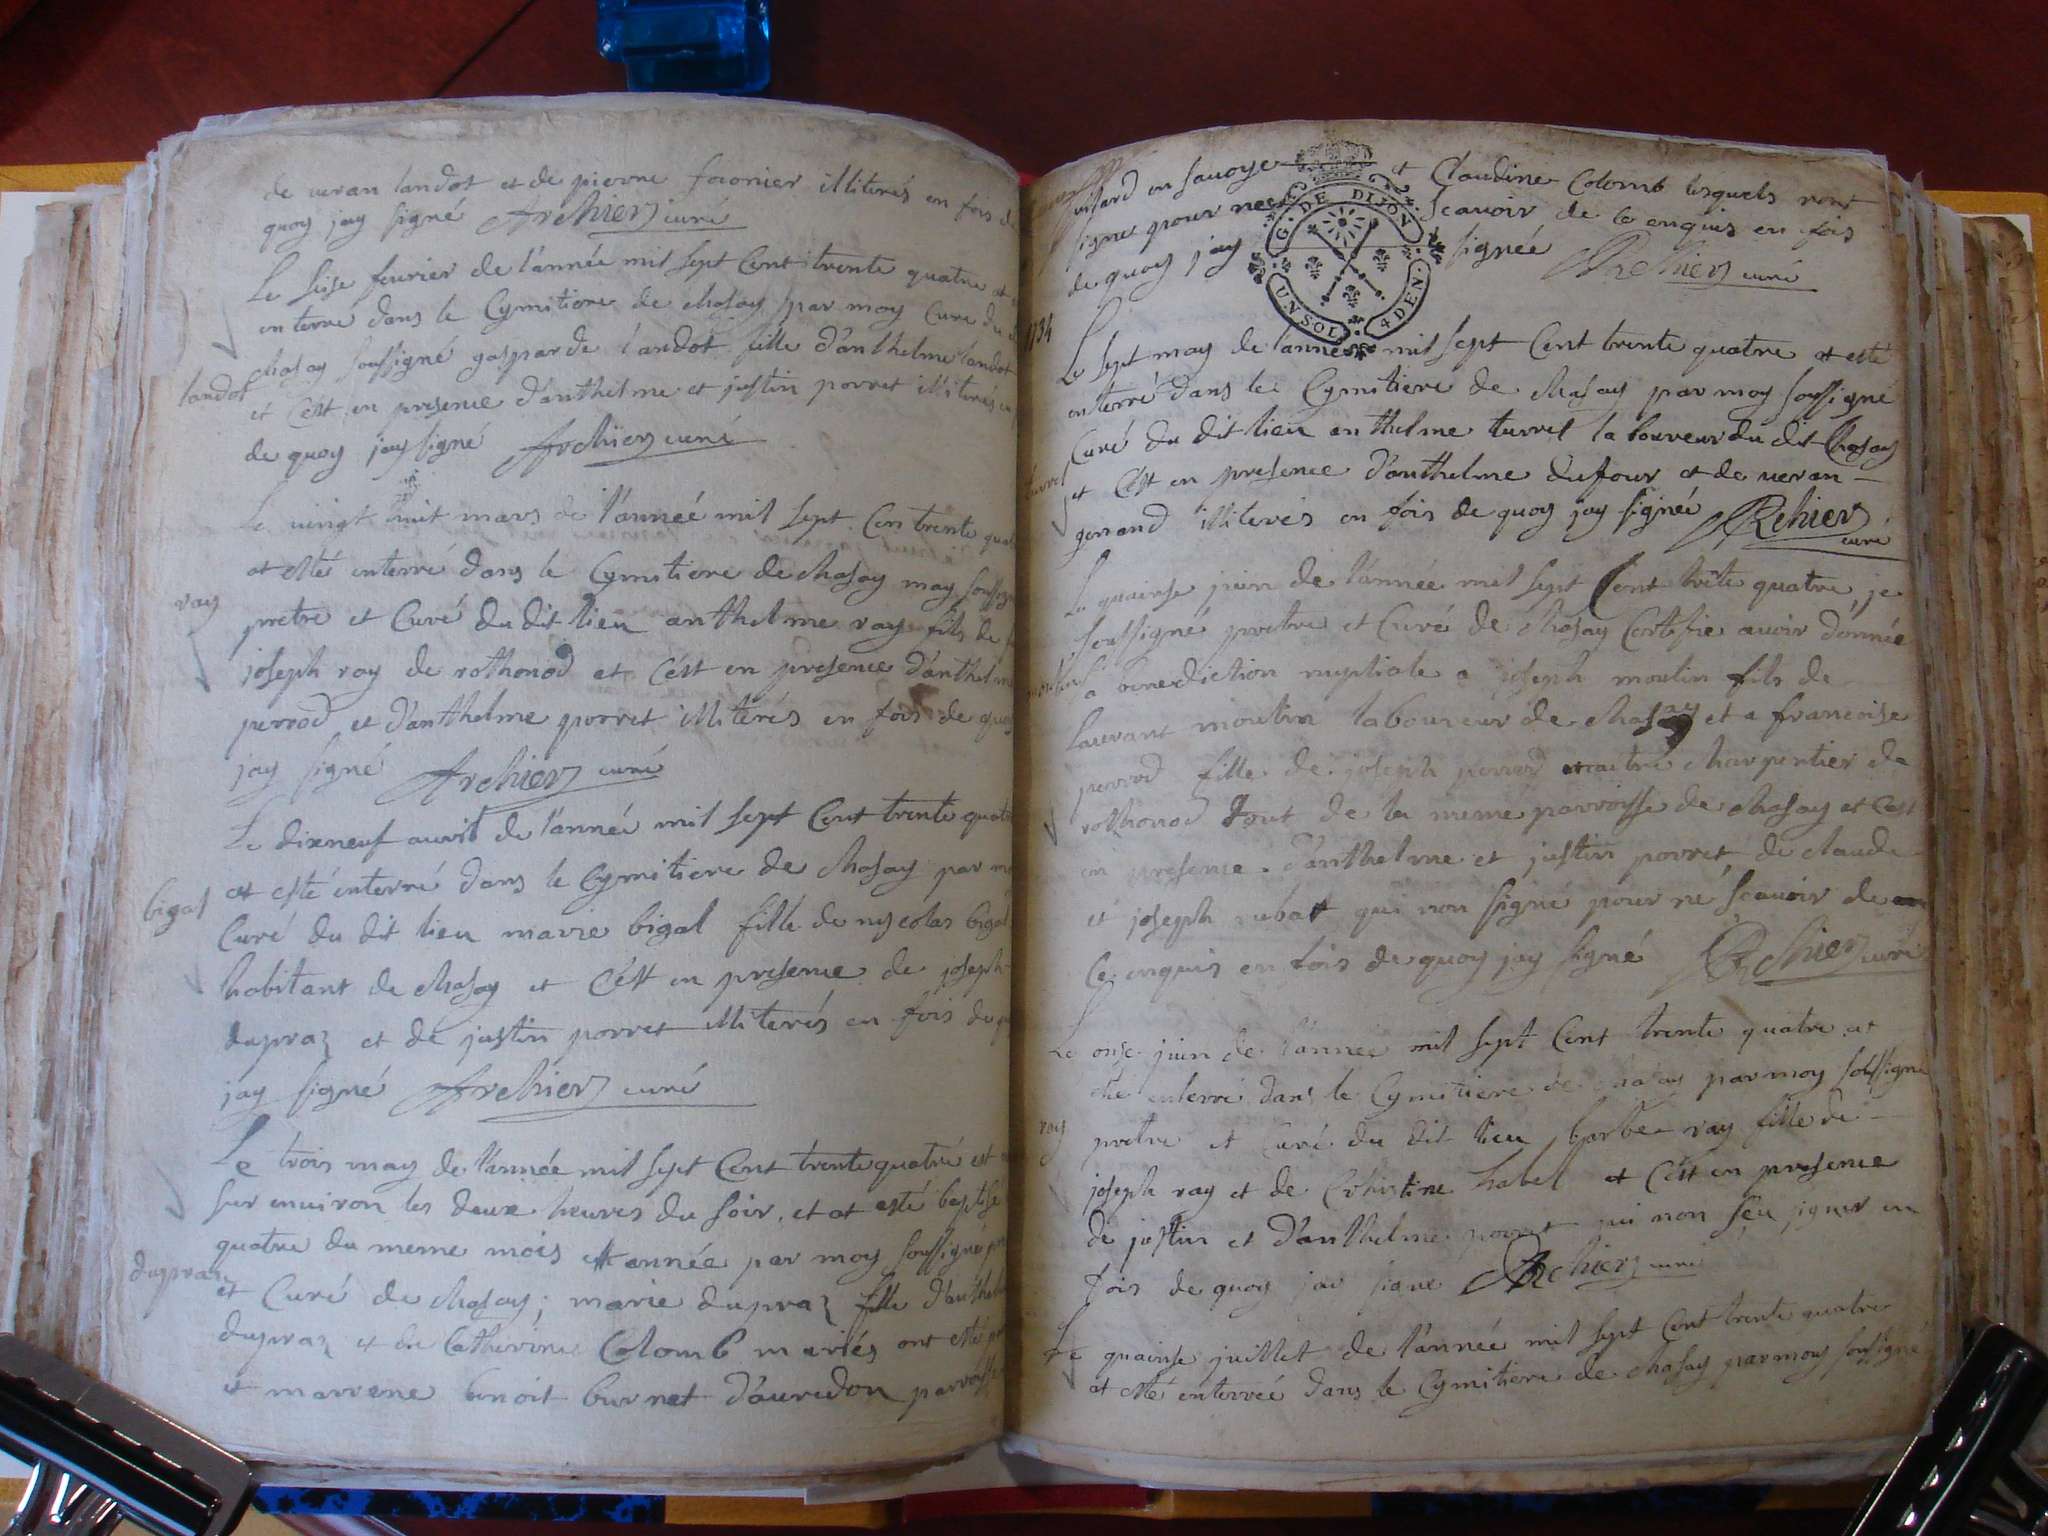 de veran landot et de pierre fornier illiterés en fois de
quoy jay signé Archier curé
Le sise fevrier de l'année mil sept cent trente quatre at
enterre dans le Cymitiere de chasay par moy Curé du
chasay soussigné gasparde landot fille d'anthelme landot
landot
et c'est en presence d'anthelme et justin porret illiterés en
de quoy jay signé Archier curé
Le vingt huit mars de l'année mil sept Cen trente quat
at esté enterré dans le Cymitiere de chasay moy soussigné
ray
pretre et Curé du dit lieu anthelme ray fils de
joseph ray de rothonod et c'est en presence d'anthelme
perrod et d'anthelme porret illiterés en fois de quoy
jay signé Archier curé
Le dixneuf auril de l'année mil sept Cent trente quatre
at esté enterré dans le Cymitiere de chasay par moy
bigal
Curé du dit lieu marie bigal fille de nycolas bigal
habitant de chasay et c'est en presence de joseph
dupraz et de justin porret illiterés en fois de quoy
jay signé Archier curé
Le trois may de l'année mil sept Cent trente quatre est
sur enuiron les deux heures du soir, et at esté baptisé
quatre du meme mois et année par moy soussigné
dupraz
et Curé de chasay; marie dupraz fille d'anthelme
dupraz et de Catherine Colomb mariés ont esté
et marrene benoit burnet d'auredon parroisse
en sauoye et Claudine Colomb lesquels nont
signe pour ne scauoir de ce enquis en fois
de quoy jay signée Archier curé
G. DE DIJON
UN SOL 4 DEN.
1734
Le sept may de l'année mil sept Cent trente quatre at esté
enterré dans le Cymitiere de chasay par moy soussigné
Curé du dit lieu anthelme turrel laboureur du dit Chasay
turrel
et c'est en presence d'anthelme dufour et de veran
gonand illiterés en fois de quoy jay signée Archier
curé
Le quainse juin de l'année mil sept Cent trête quatre, je
soussigné pretre et Curé de chasay Certifie auoir donnée
la benediction nuptiale a joseph moulin fils de
laurant moulin laboureur de chasay et a francoise
perrod fille de joseph perrod maitre charpentier de
rothonod tout de la meme parroisse de chasay et c'est
en presence d'anthelme et justin porret de claude
et joseph rubat qui non signé pour né scauoir de
ce enquis en fois de quoy jay signé Archier curé
Le onse juin de l'année mil sept Cent trente quatre at
été enterré dans le Cymitiere de chasay par moy soussigné
ray
pretre et Curé du dit lieu barbe ray fille de
joseph ray et de Christine habel et c'est en presence
de justin et d'anthelme porret qui non seu signer en
fois de quoy jay signé Archier curé
Le quainse juillet de l'année mil sept Cent trente quatre
at esté enterrée dans le Cymitiere de chasay par moy soussigné